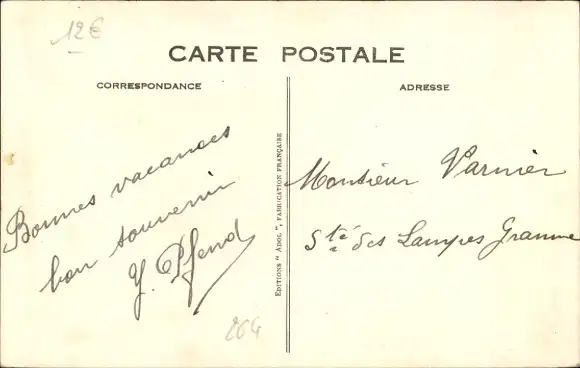 12€
CARTE POSTALE
CORRESPONDANCE
ADRESSE
Bonnes vacances
bon souvenir
Y. Pfend
EDITIONS " ADOL ", FABRICATION FRANÇAISE
Monsieur Varnier
Sté des Lampes Gramme
264